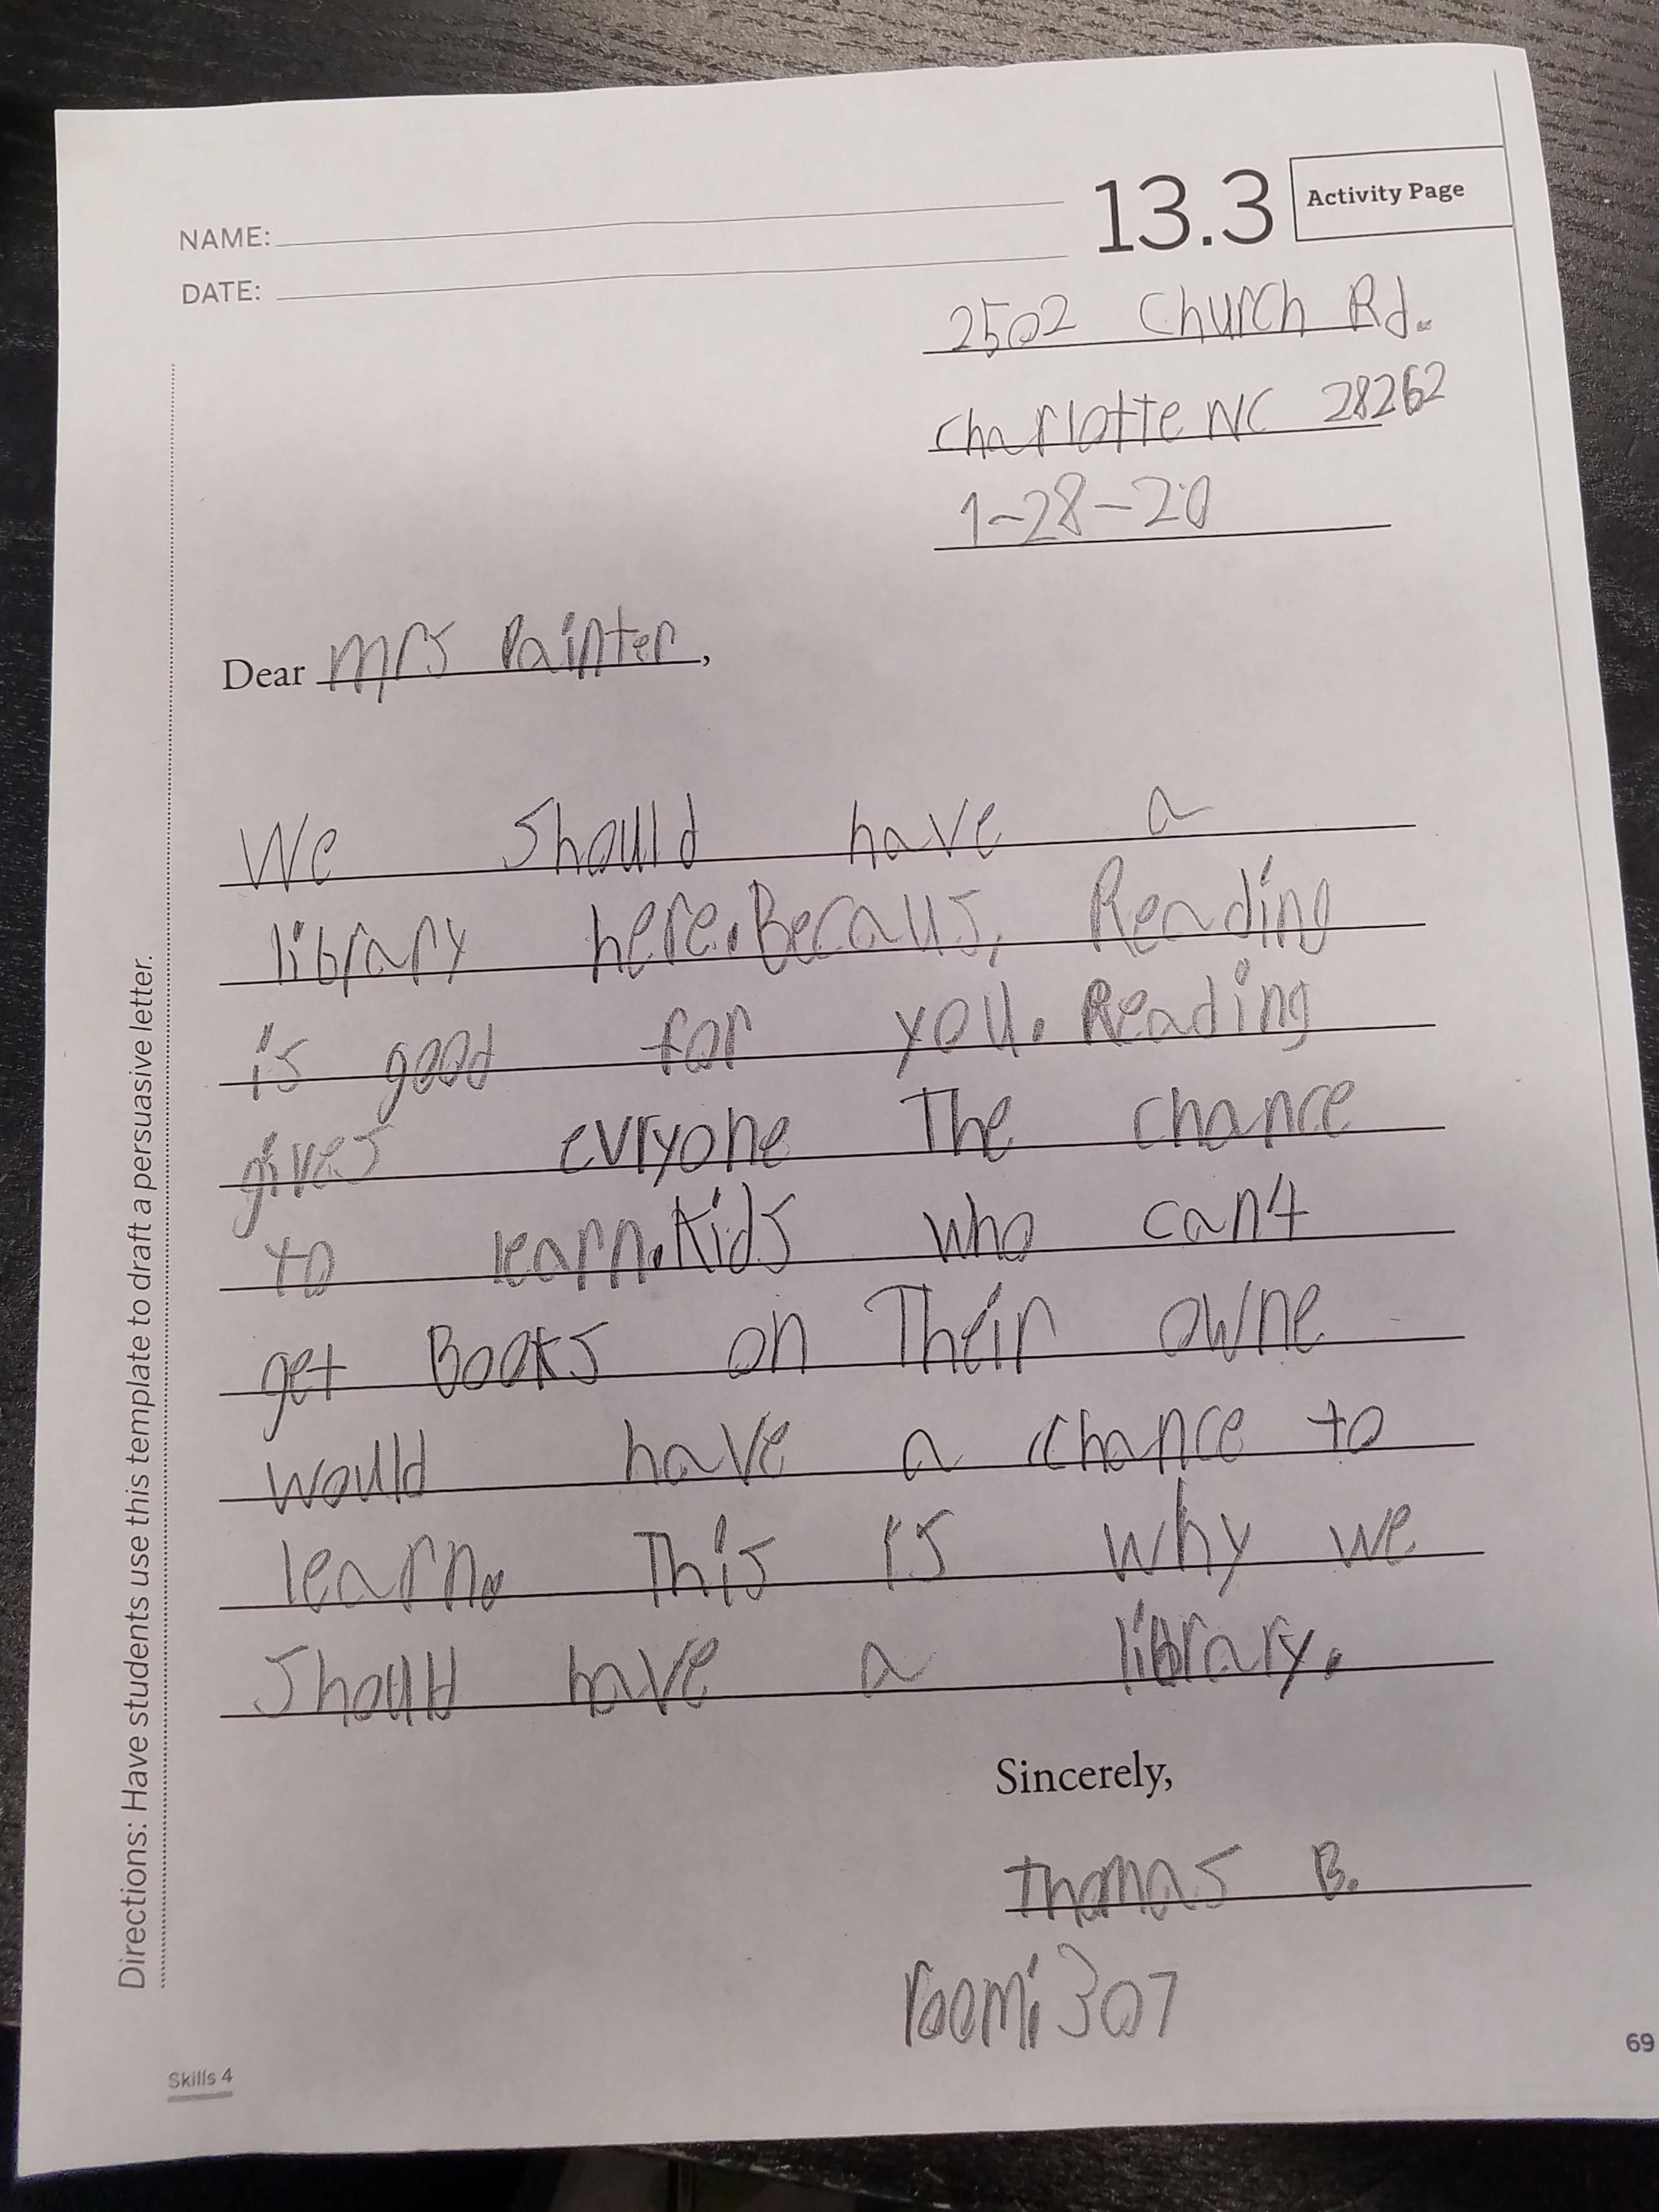 NAME:
DATE:
13.3
Activity Page
2502 Church Rd.
Charlotte NC 28262
1-28-20
Dear mrs Painter,
We Should have a
library here. Becaus, Reading
is good for you. Reading
gives evryone The chance
to learn. Kids who can't
get Books on Their owne
would have a chance to
learn. This is why we
Should have a library.
Sincerely,
Thomas B.
room: 307
Directions: Have students use this template to draft a persuasive letter.
Skills 4
69